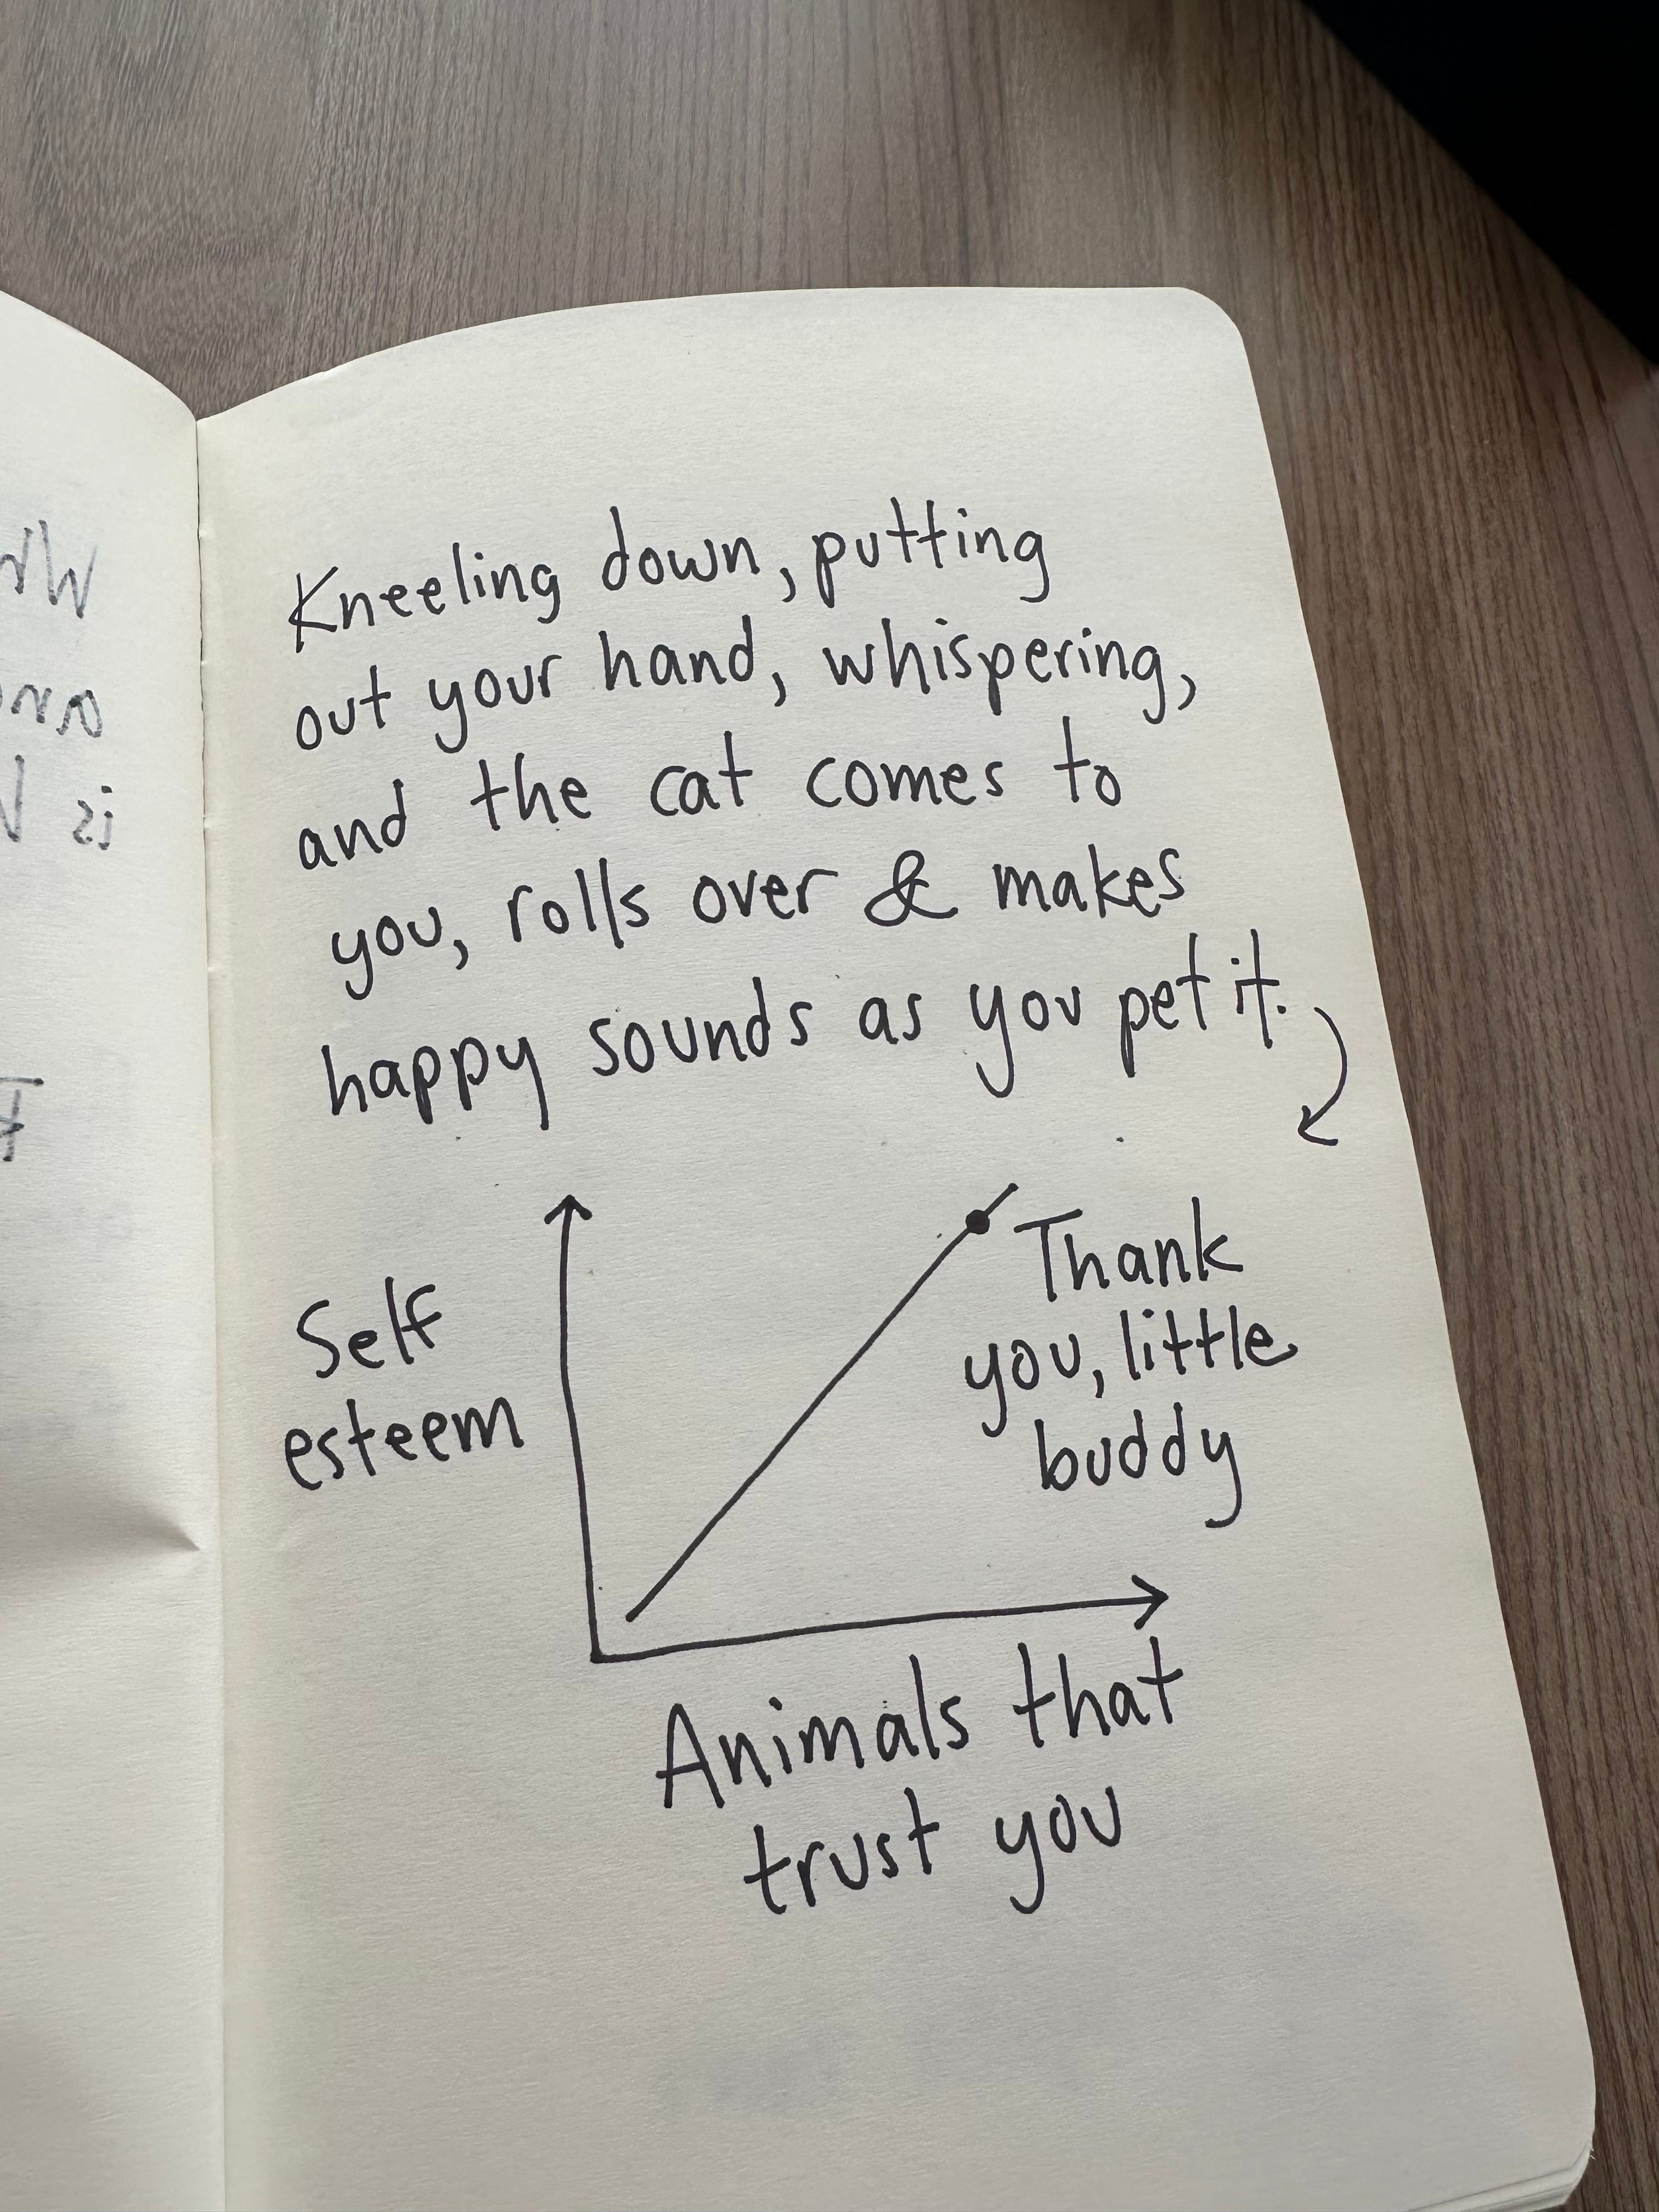 Kneeling down, putting
out your hand, whispering,
and the cat comes to
you, rolls over & makes
happy sounds as you pet it.
Self
esteem
Thank
you, little
buddy
Animals that
trust you